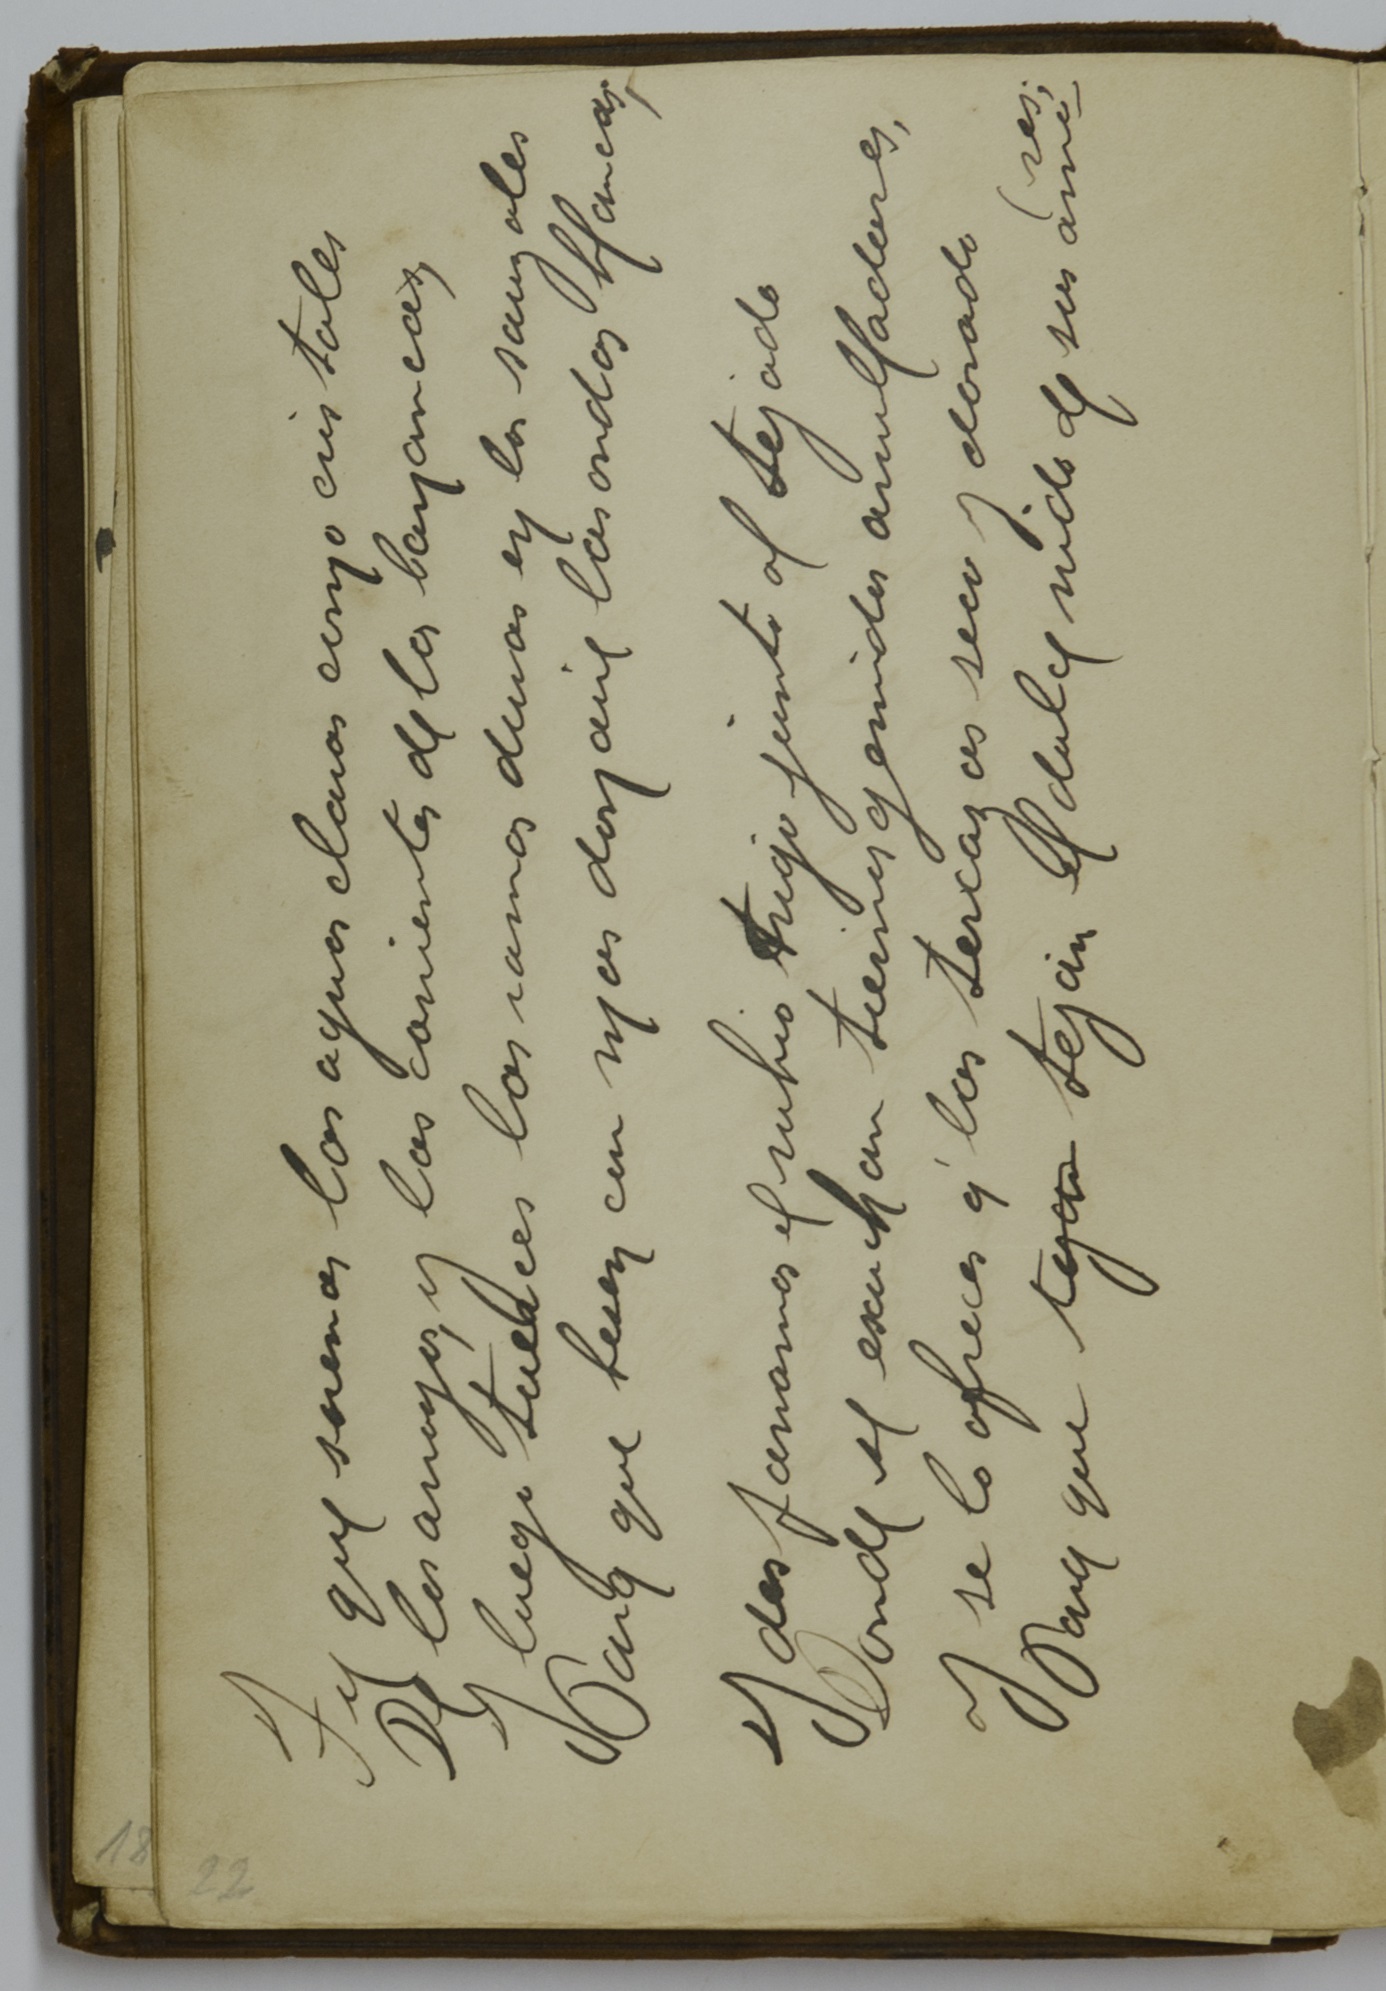 Tú que serenas las aguas claras como cristales
De los arroyos, y las corrientes de las barrancas,
Y luego tuerces las ramas duras en los sauzales
Para que besen con mas donaire las ondas blancas;
Y desparramas el rubio trigo junto al tejado
Donde se escuchan tiernos gemidos arrulladores,
Y se lo ofreces á las torcazas seco y dorado
(res;
Para que tejan el dulce nido de sus amo-
18
22